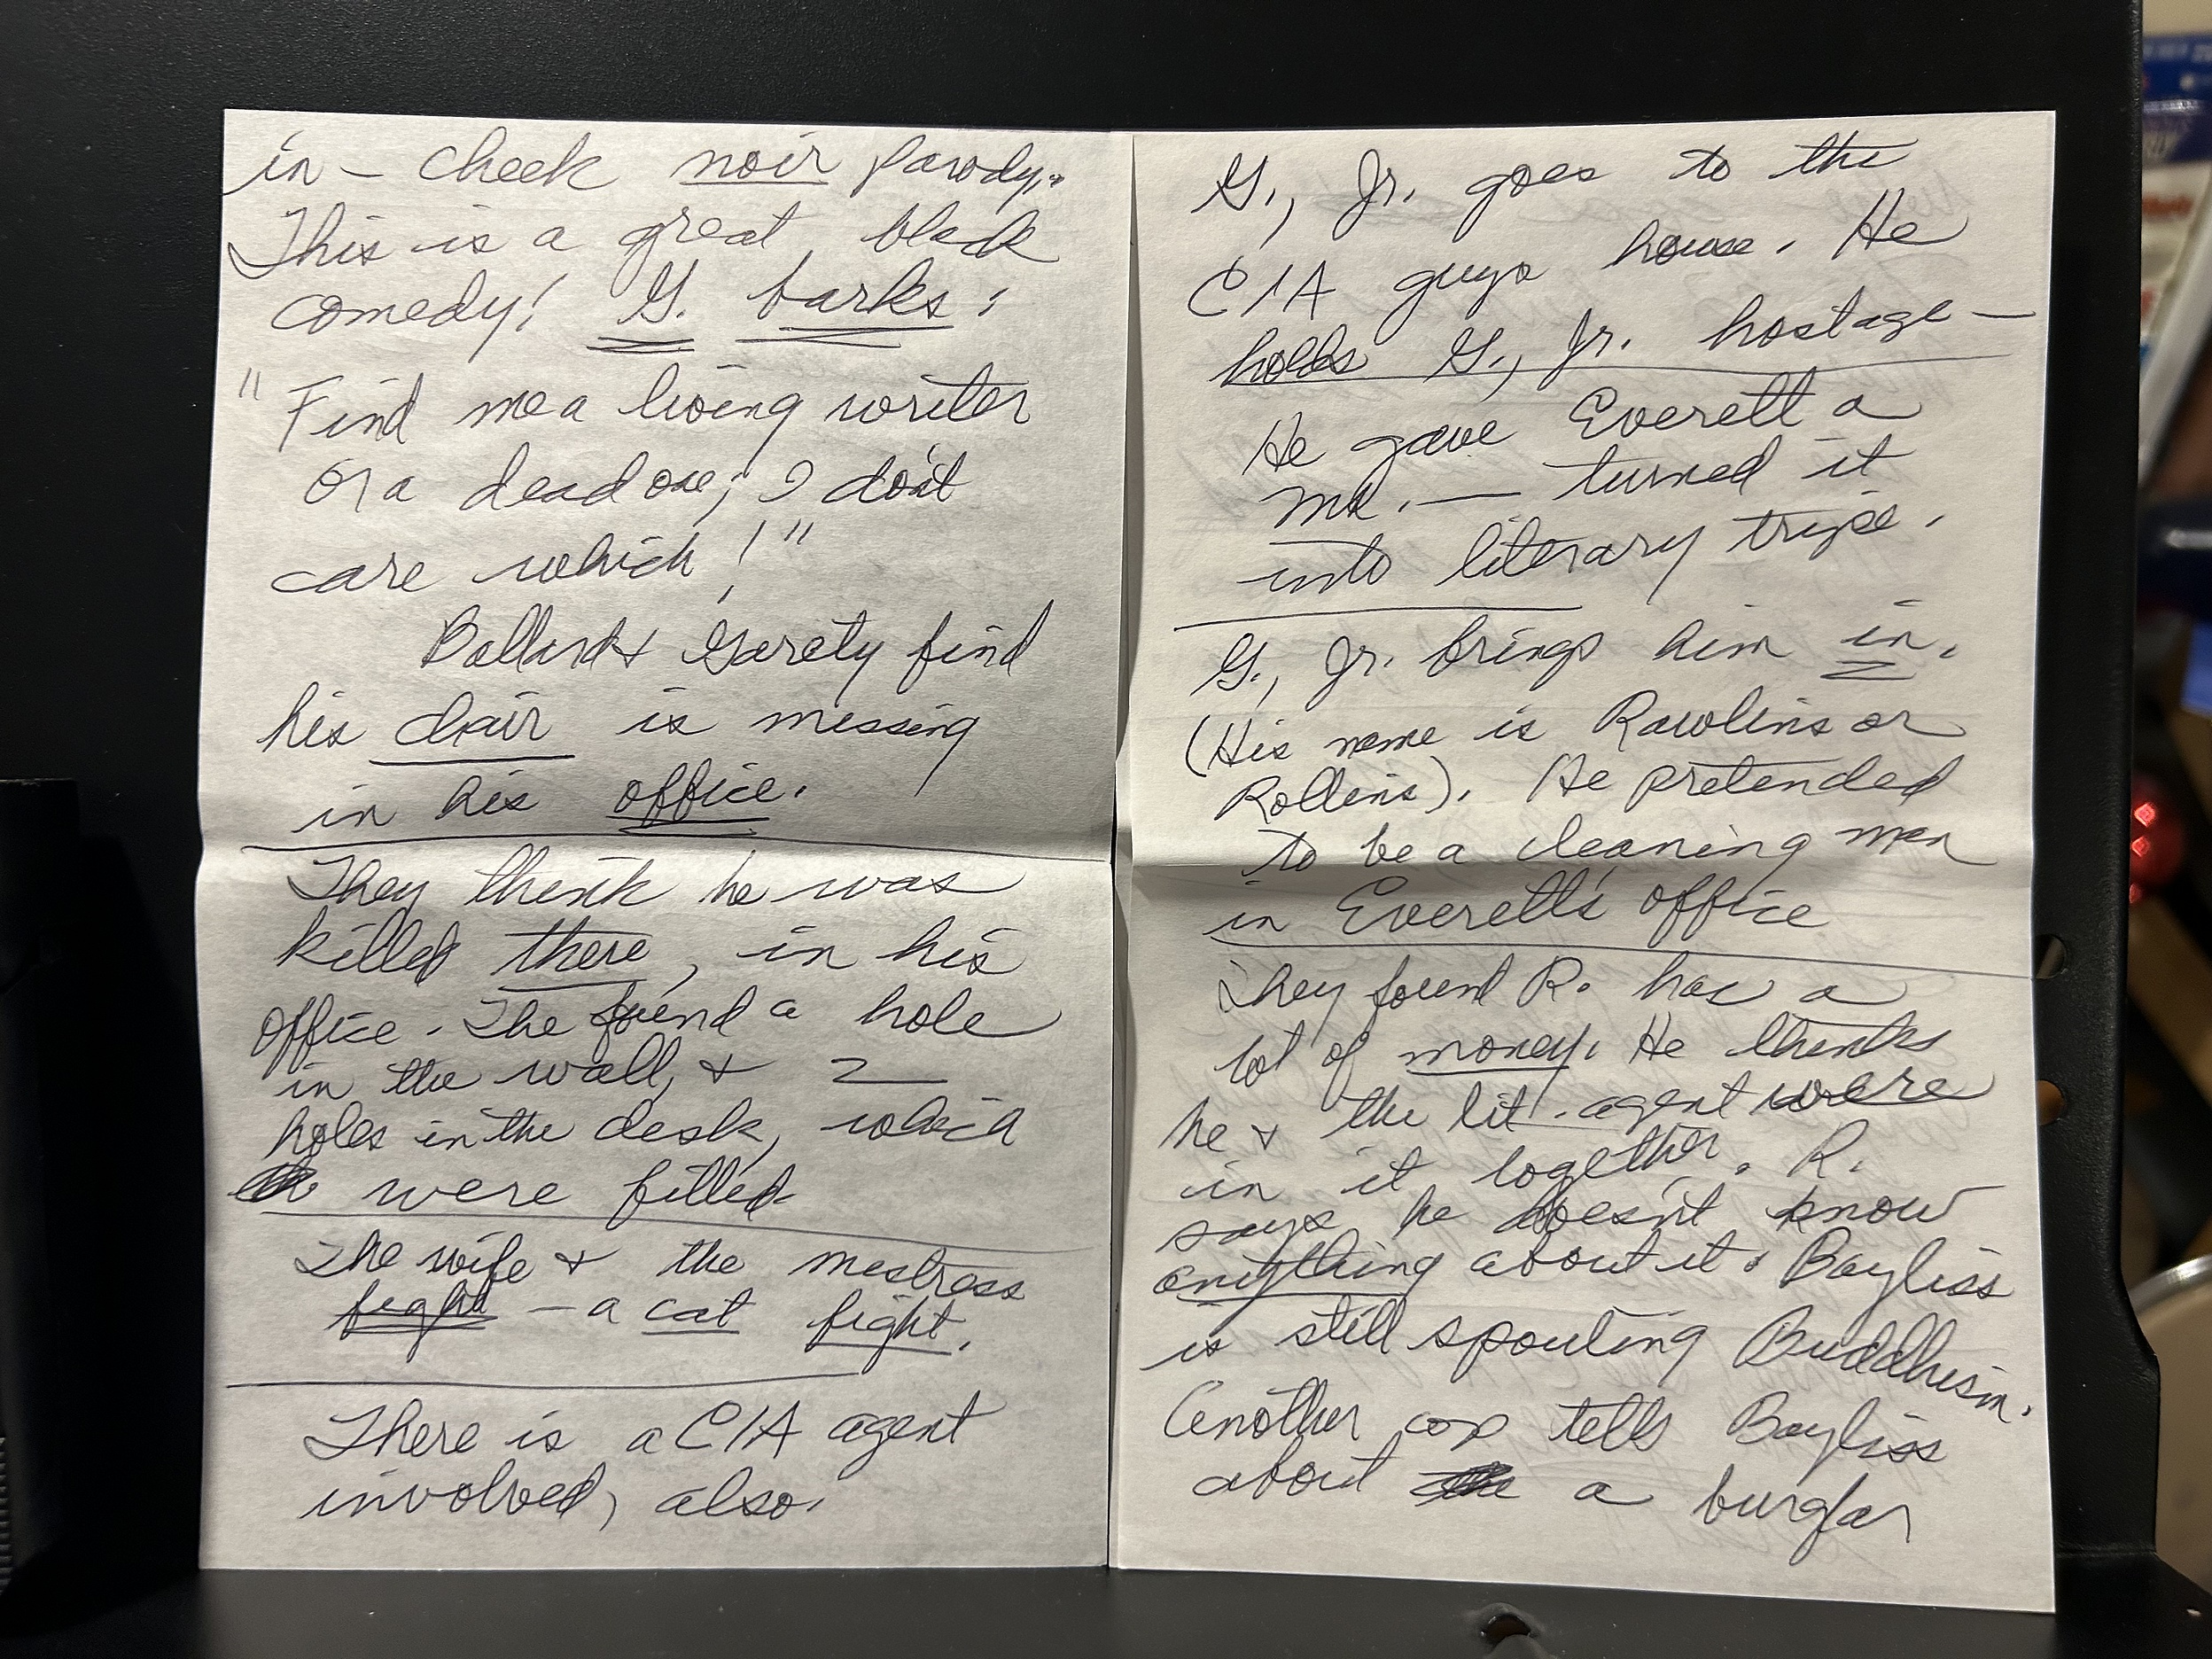 in - cheek noir parody."
This is a great black
comedy! G. barks:
"Find me a living writer
or a dead one; I don't
care which!"
Ballard & Garety find
his chair is missing
in his office.
They think he was
killed there, in his
office. The found a hole
in the wall, & 2
holes in the desk, which
were filled
The wife & the mistress
fight - a cat fight.
There is a CIA agent
involved, also.
G., Jr. goes to the
CIA guys house. He
holds G., Jr. hostage -
He gave Everett a
ms. — turned it
into literary tripe.
G., Jr. brings him in.
(His name is Rawlins or
Rollins). He pretended
to be a cleaning man
in Everett's office
They found R. has a
lot of money. He thinks
he & the lit. agent were
in it together. R.
says he doesn't know
anything about it. Bayliss
is still spouting Buddhism.
Another cop tells Bayliss
about a burglar